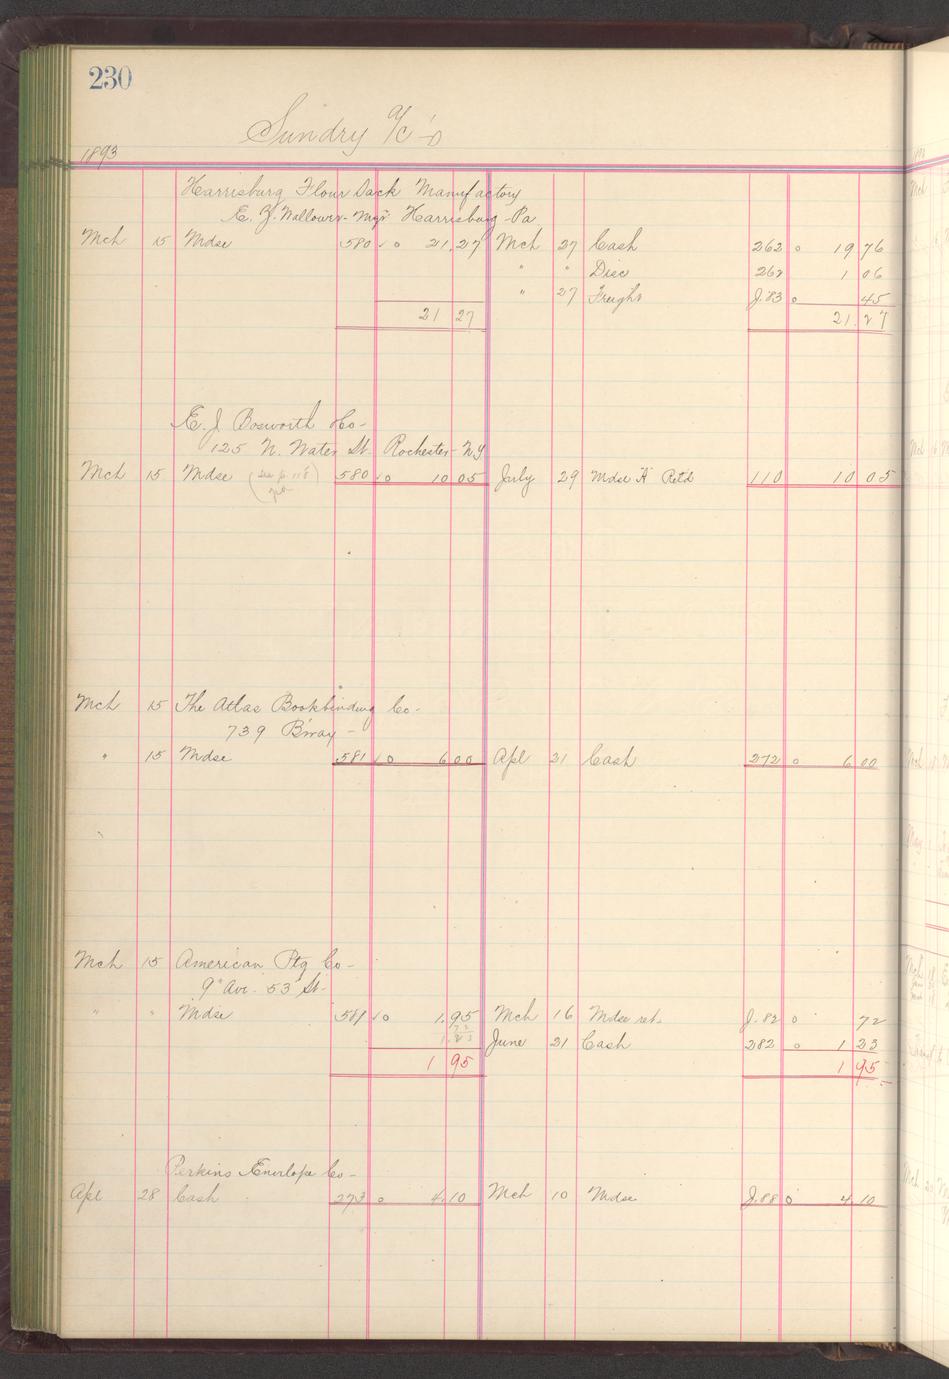 230
Sundry a/c's
1893
Harrisburg Flour Sack Manufactory
E. Z. Wallower - Mgr. Harrisburg - Pa
Mch 15 Mdse 580 o 21.27 Mch 27 Cash 262 o 19 76
" " Disc 262 1 06
" 27 Freight J.83 o 45
21 27 21.27
E. J. Bosworth Co-
125 N. Water St. Rochester - NY
Mch 15 Mdse (See p 118 580 o 10 05 July 29 Mdse "A" Retd 110 10 05
Mch 15 The Atlas Bookbinding Co-
739 B'way -
" 15 Mdse 581 o 6 00 Apl 21 Cash 272 o 6 00
Mch 15 American Ptg Co-
9" Ave. 53" St-
" " Mdse 581 o 1.95 Mch 16 Mdse ret. J.82 o 72
72
1.23 June 21 Cash 282 o 1 23
1 95 1 95
Perkins Envelope Co-
Apl 28 Cash 273 o 4.10 Mch 10 Mdse J.88 o 4.10